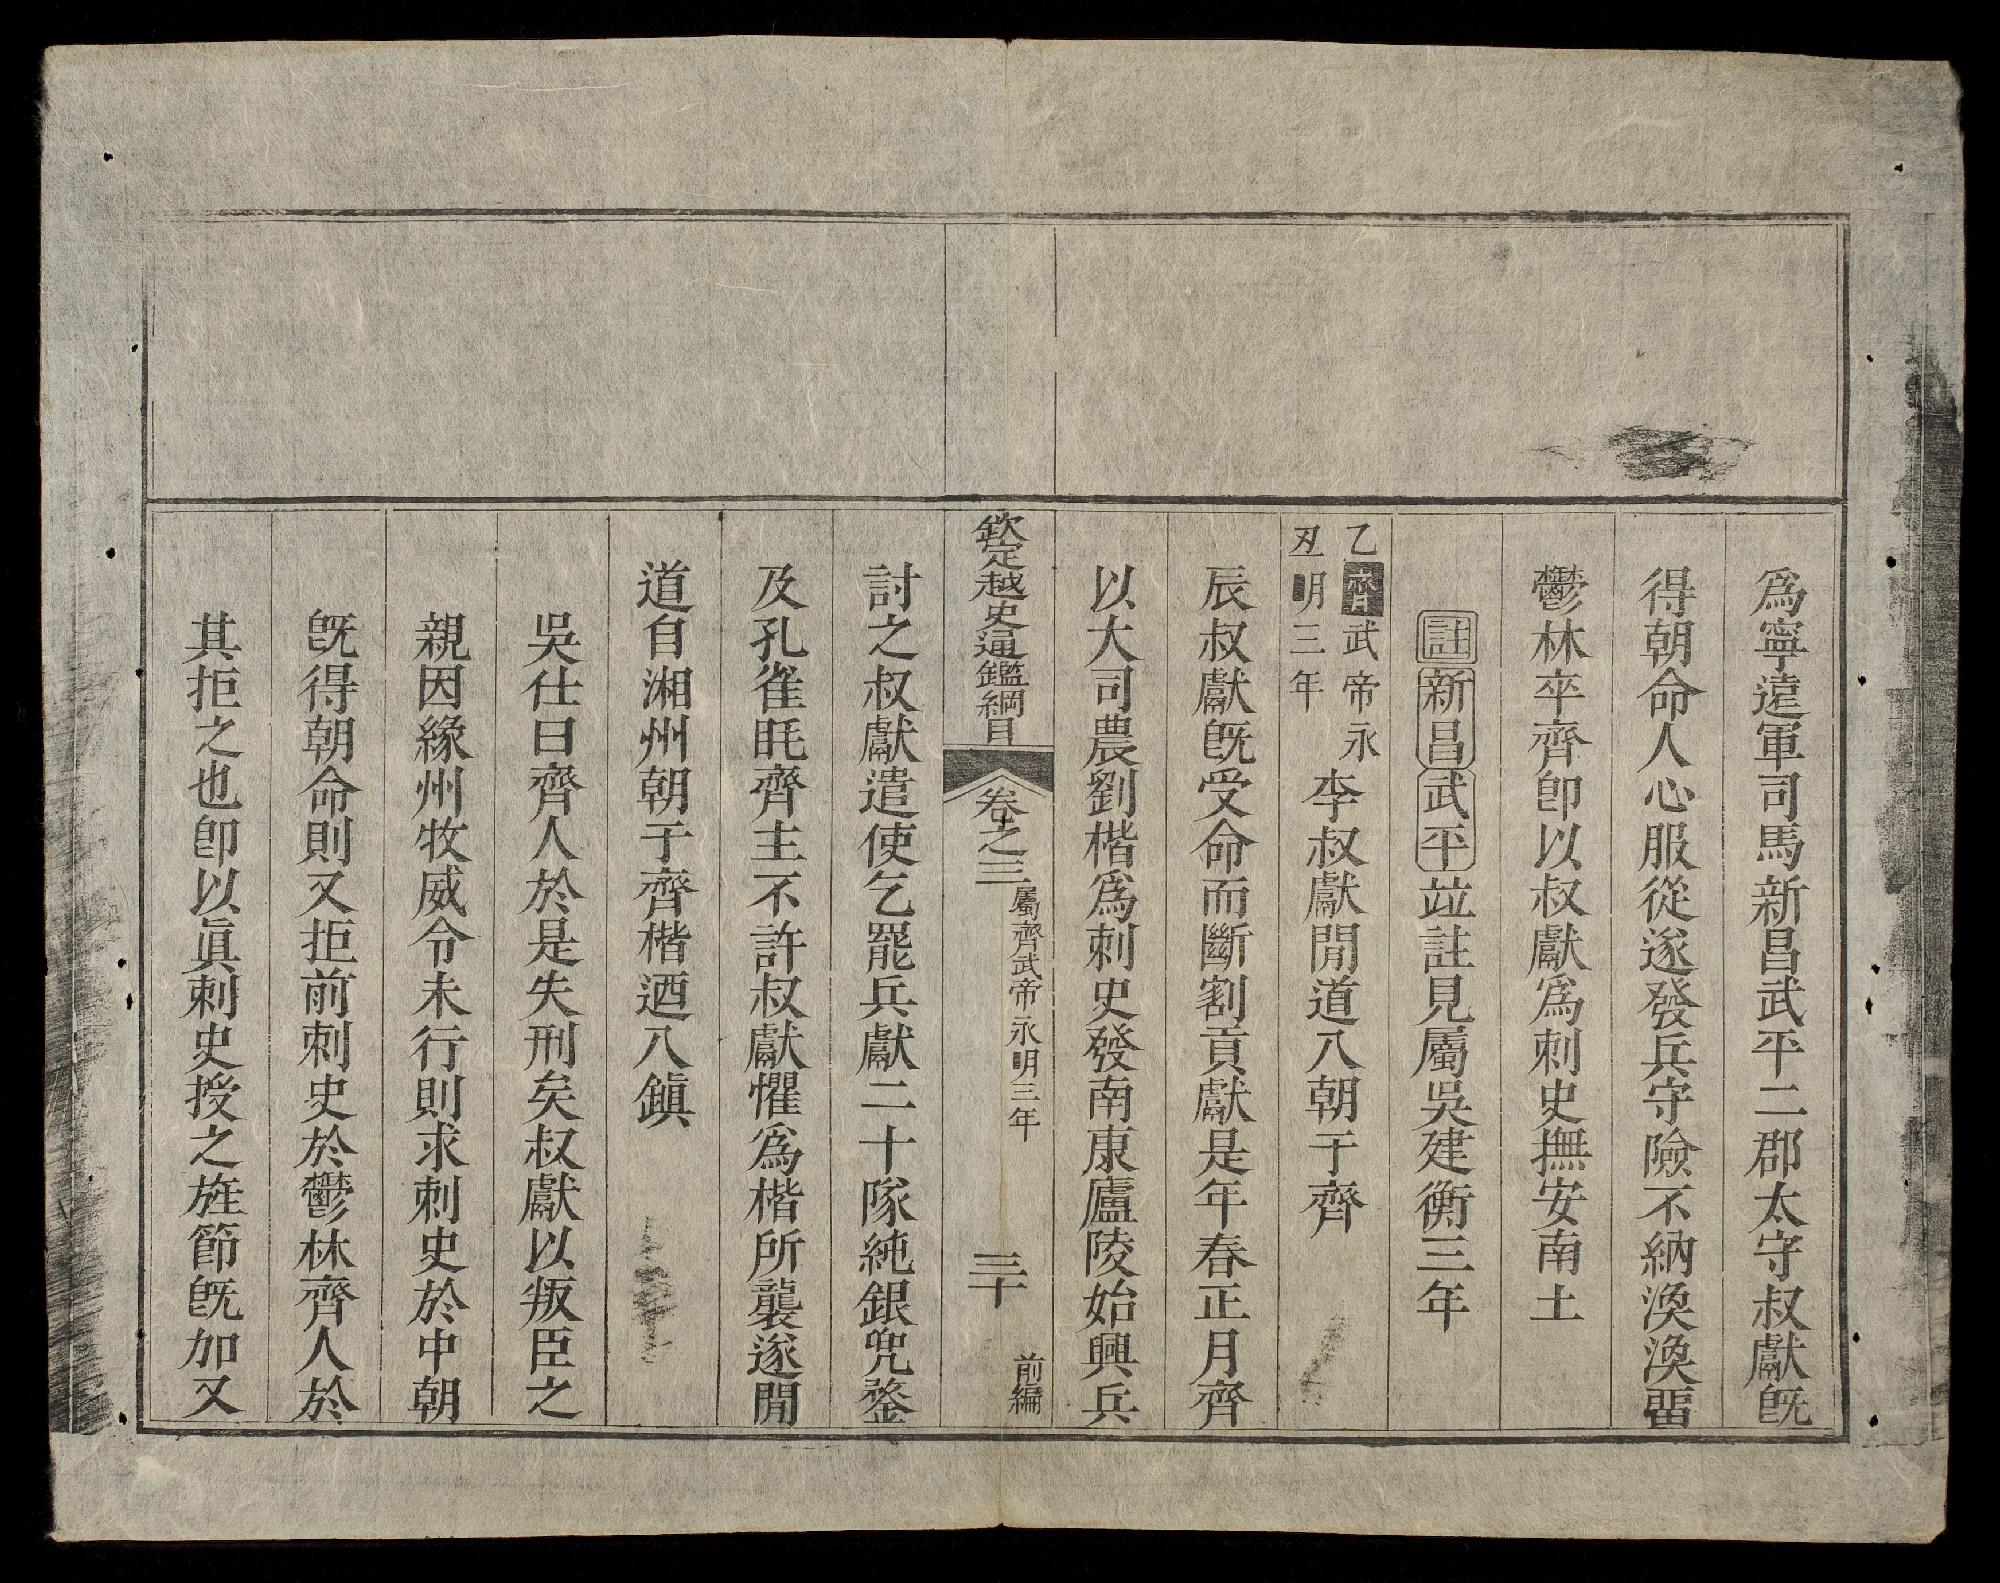 爲寧遠軍司馬新昌武平二郡太守叔獻旣
得朝命人心服從遂發兵守險不納渙渙畱
鬱林卒齊卽以叔獻爲刺史撫安南土
註新昌武平竝註見屬吳建衡三年
乙丑齊武帝永明三年李叔獻閒道入朝于齊
辰叔獻旣受命而斷割貢獻是年春正月齊
以大司農劉楷爲刺史發南康廬陵始興兵
欽定越史通鑑綱目 卷之三 屬齊武帝永明三年 三十 前編
討之叔獻遣使乞罷兵獻二十隊純銀兜鍪
及孔雀毦齊主不許叔獻懼爲楷所襲遂閒
道自湘州朝于齊楷迺入鎭
吳仕曰齊人於是失刑矣叔獻以叛臣之
親因緣州牧威令未行則求刺史於中朝
旣得朝命則又拒前刺史於鬱林齊人於
其拒之也卽以眞刺史授之旌節旣加又